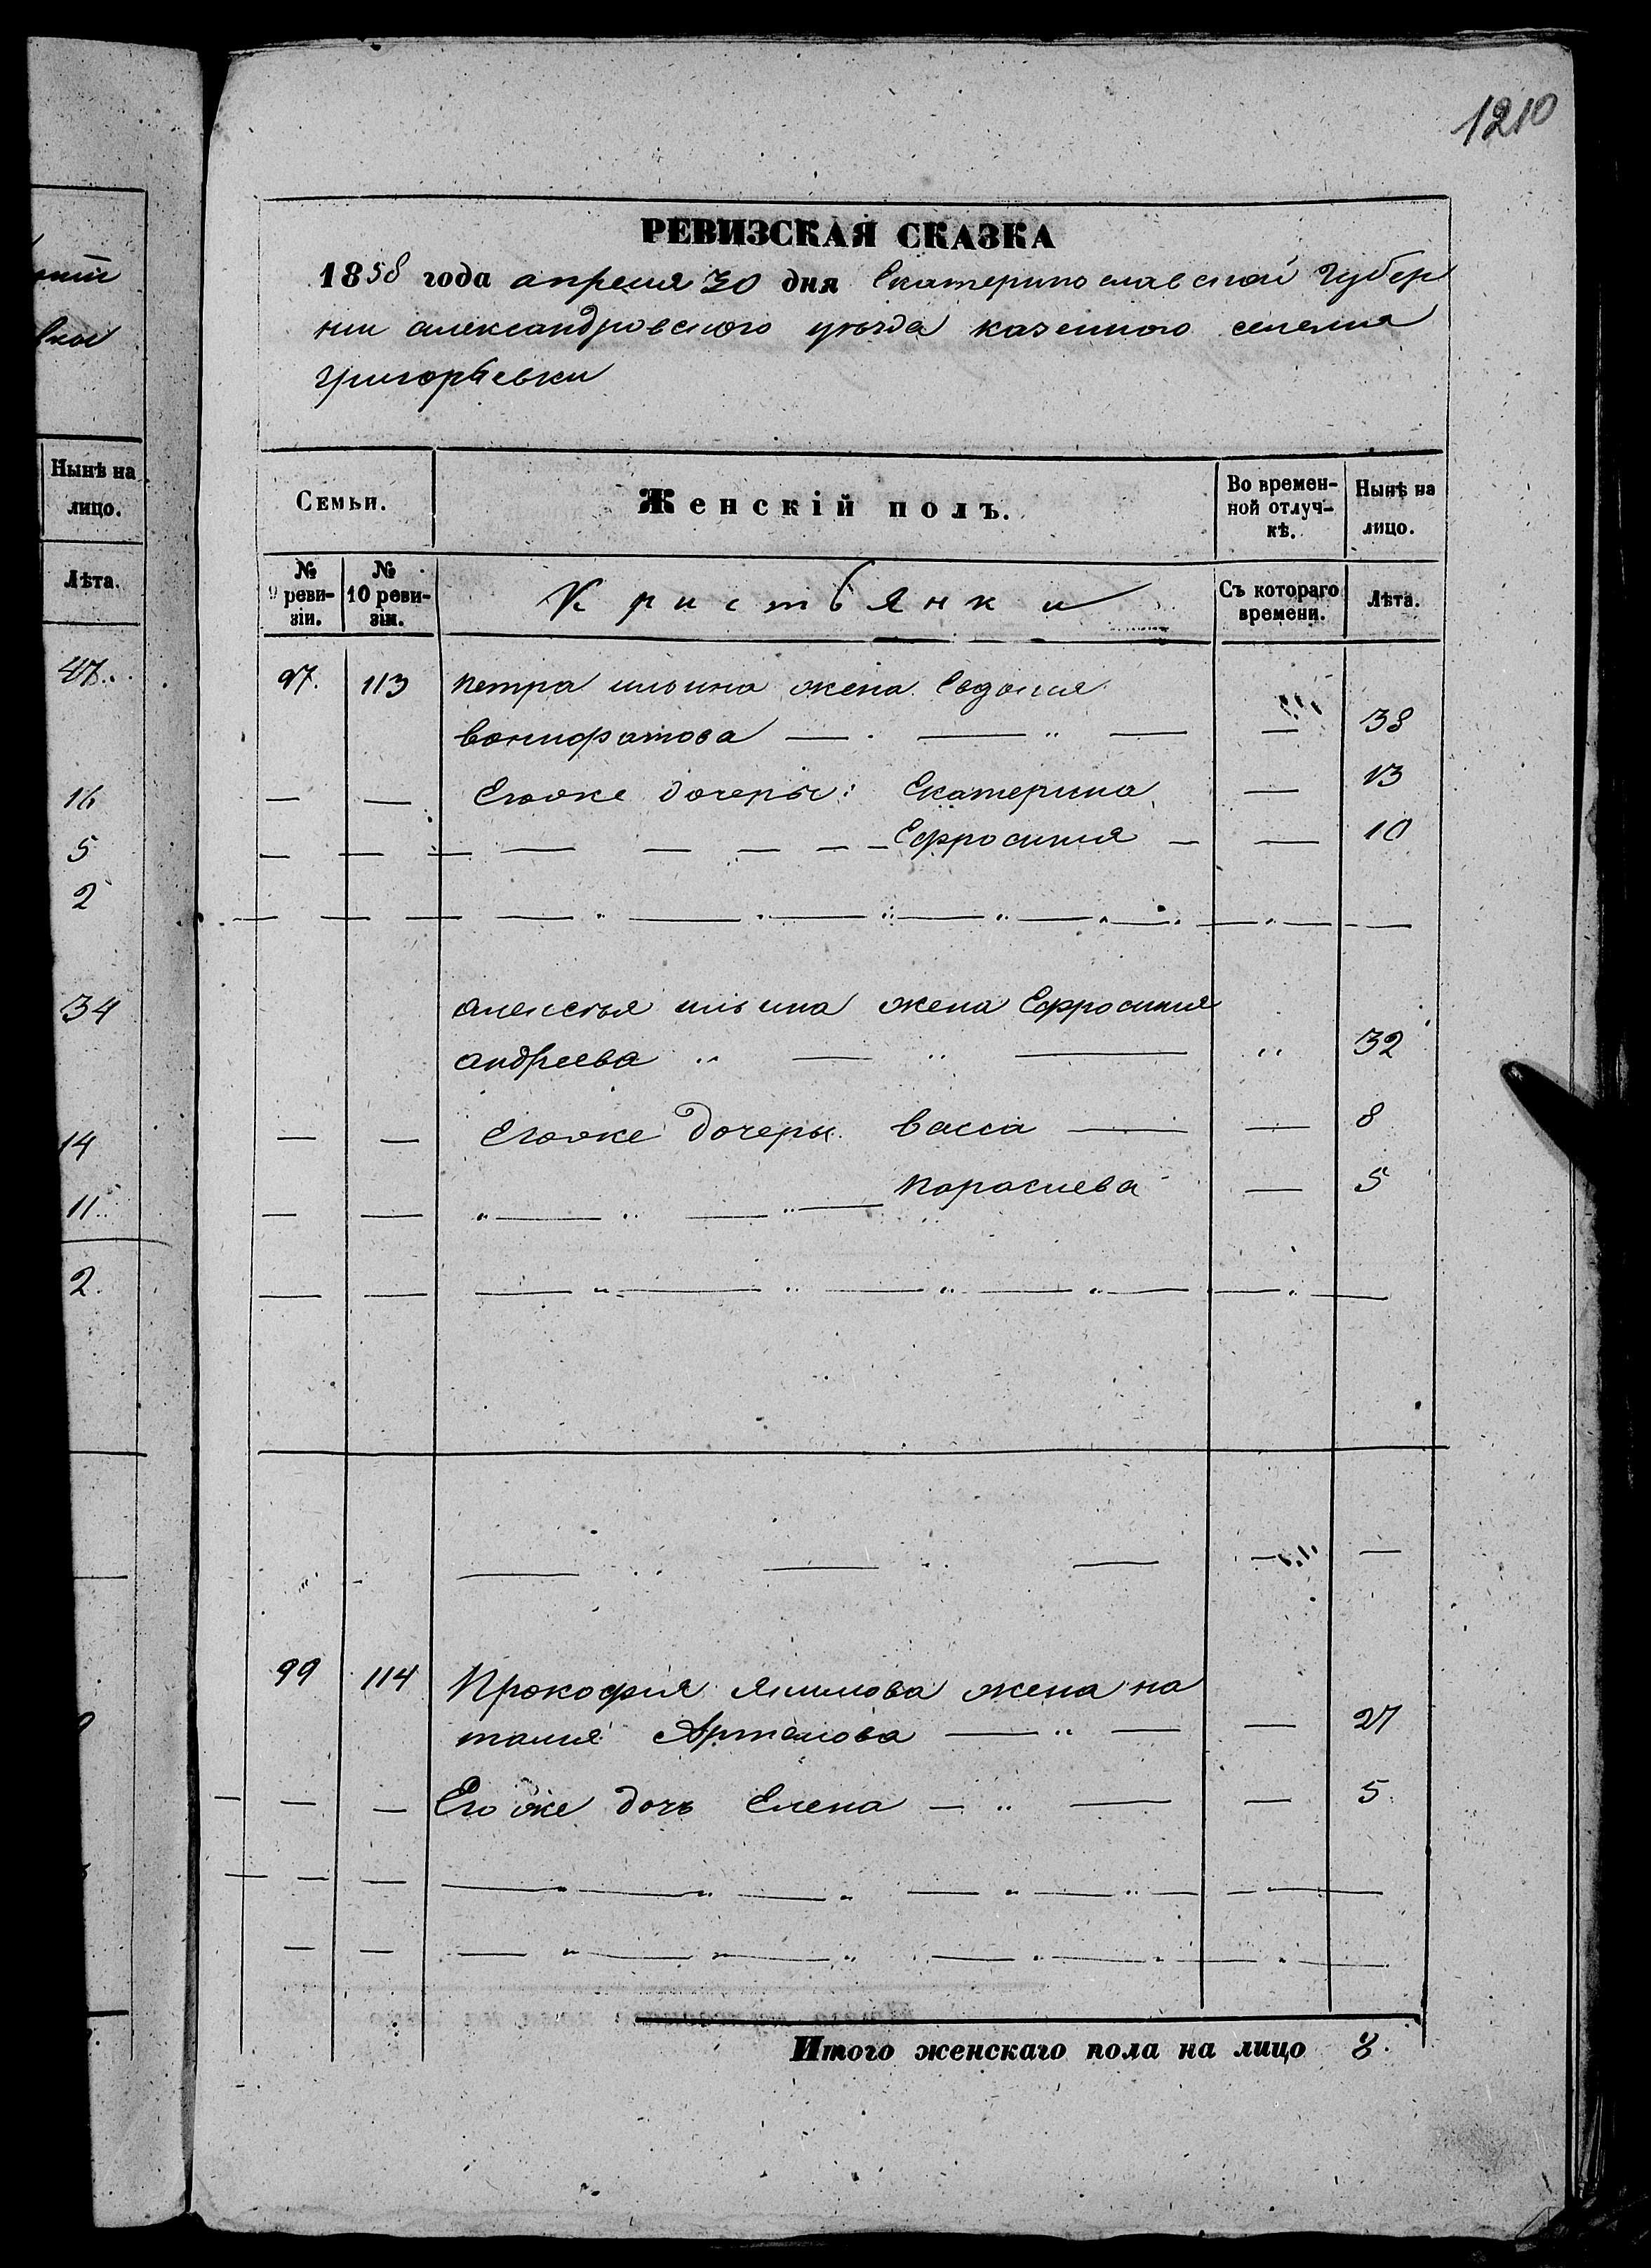 1210
РЕВИЗСКАЯ СКАЗКА
1858 года апреля 30 дня Екатеринославской Губер
нии александровского уѣзда казенного селения
григорьевки
Нынѣ на
лицо.
Лѣта.
47.
16
5
2
34
14
11
2.
Семьи.
Женскій полъ.
Во времен-
ной отлуч-
кѣ.
Нынѣ на
лицо.
№
9 реви-
зіи.
№
10 реви-
зіи.
Кристьянки
Съ котораго
времени.
Лѣта.
97. 113 петра ильина жена Евдокия
вонифатова — — — — 38
— — Егоже дочеры: Екатерина — 13
— — Ефросиния — — 10
алексея ильина жена Ефросиния
андреева — — 32
— — Егоже дочеры васса — — 8
— — парасцева — 5
99 114 Прокофия якимова жена на
талия Артемова — — — 27
— — Его же дочь Елена — — — 5.
Итого женскаго пола на лицо 8.